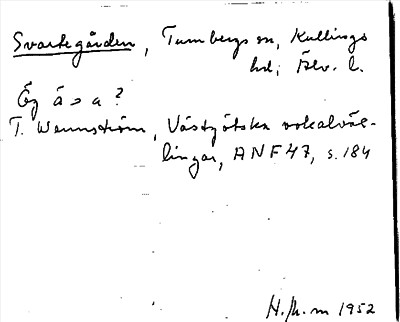 Svartegården, Tumbergs sn, Kullings
hd; Älv. l.
Ég á > a?
T. Wennström, Västgötska vokalväx-
lingar, ANF 47, s. 184
1952